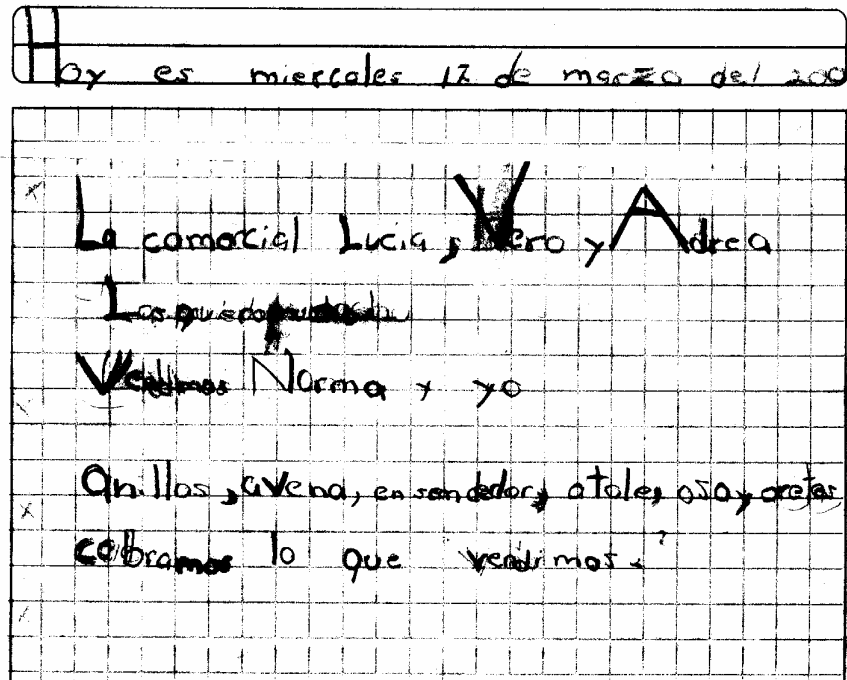 Hoy es miercales 17 de marzo del 200
La comorcial Lucia, Vero y Adrea
Vendimos Norma y yo
anillos, avena, en sendedor, atole, oso y aretes
cobramos lo que vendimos.